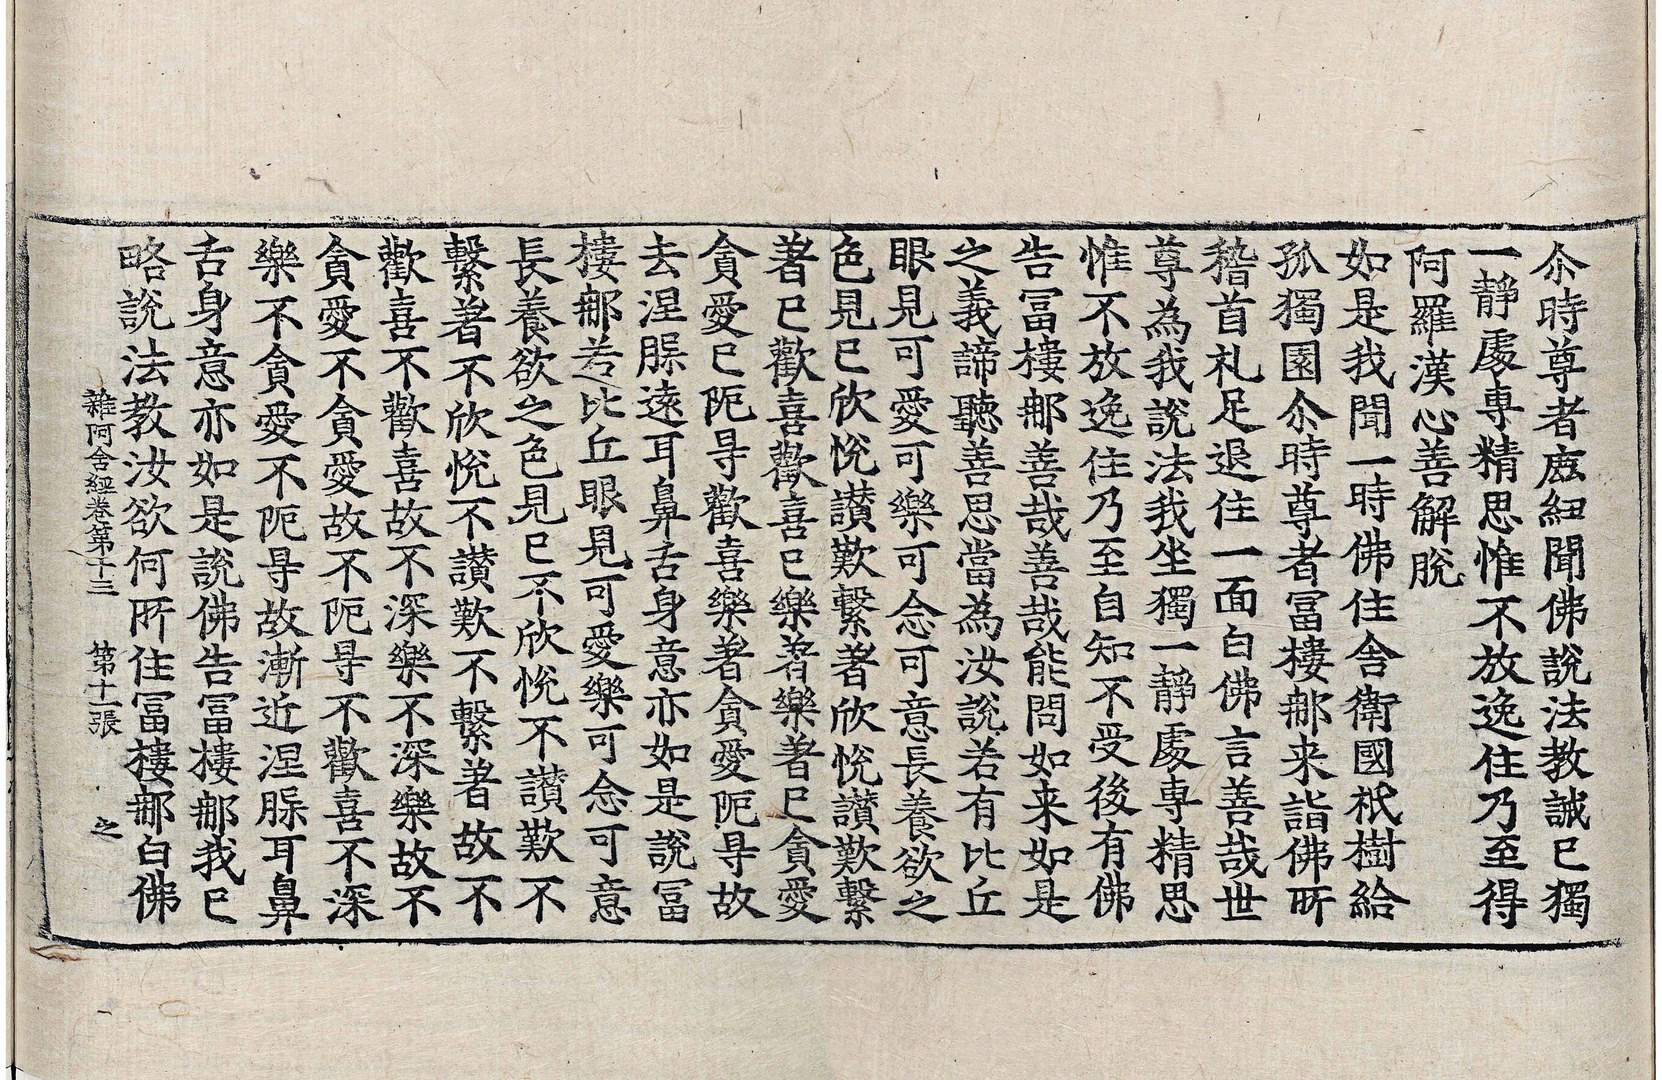 尒時尊者鹿紐聞佛說法教誡已獨
一靜處專精思惟不放逸住乃至得
阿羅漢心善解脫
如是我聞一時佛住舍衛國祇樹給
孤獨園尒時尊者冨樓那来詣佛所
稽首礼足退住一面白佛言善哉世
尊為我說法我坐獨一靜處專精思
惟不放逸住乃至自知不受後有佛
告冨樓那善哉善哉能問如来如是
之義諦聽善思當為汝說若有比丘
眼見可愛可樂可念可意長養欲之
色見已欣悅讃歎繫著欣悅讃歎繫
著已歡喜歡喜已樂著樂著已貪愛
貪愛已阨㝵歡喜樂著貪愛阨㝵故
去涅槃遠耳鼻舌身意亦如是說冨
樓那若比丘眼見可愛樂可念可意
長養欲之色見已不欣悅不讃歎不
繫著不欣悅不讃歎不繫著故不
歡喜不歡喜故不深樂不深樂故不
貪愛不貪愛故不阨㝵不歡喜不深
樂不貪愛不阨㝵故漸近涅槃耳鼻
舌身意亦如是說佛告冨樓那我已
略說法教汝欲何所住冨樓那白佛
雜阿含經卷第十三　第十一張　之